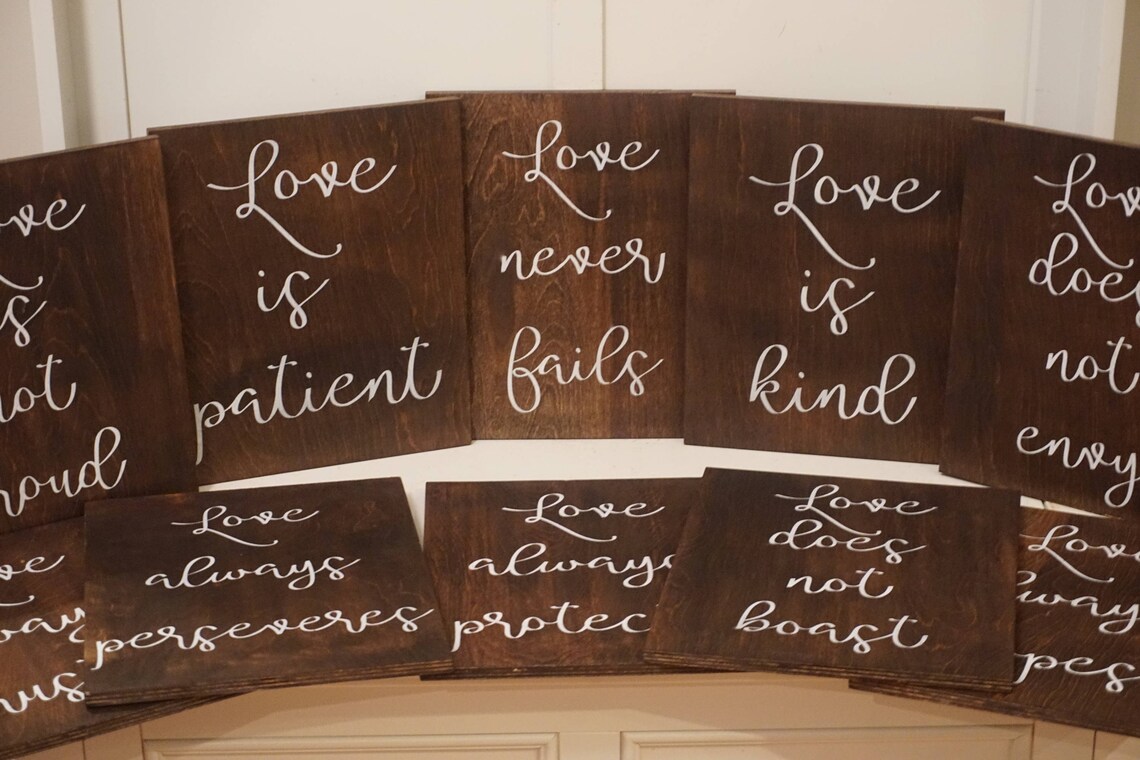 ove
is
not
roud
Love
is
patient
Love
never
fails
Love
is
kind
Lov
does
not
envy
ve
ways
rus
Love
always
perseveres
Love
always
protec
Love
does
not
boast
Love
lways
pes